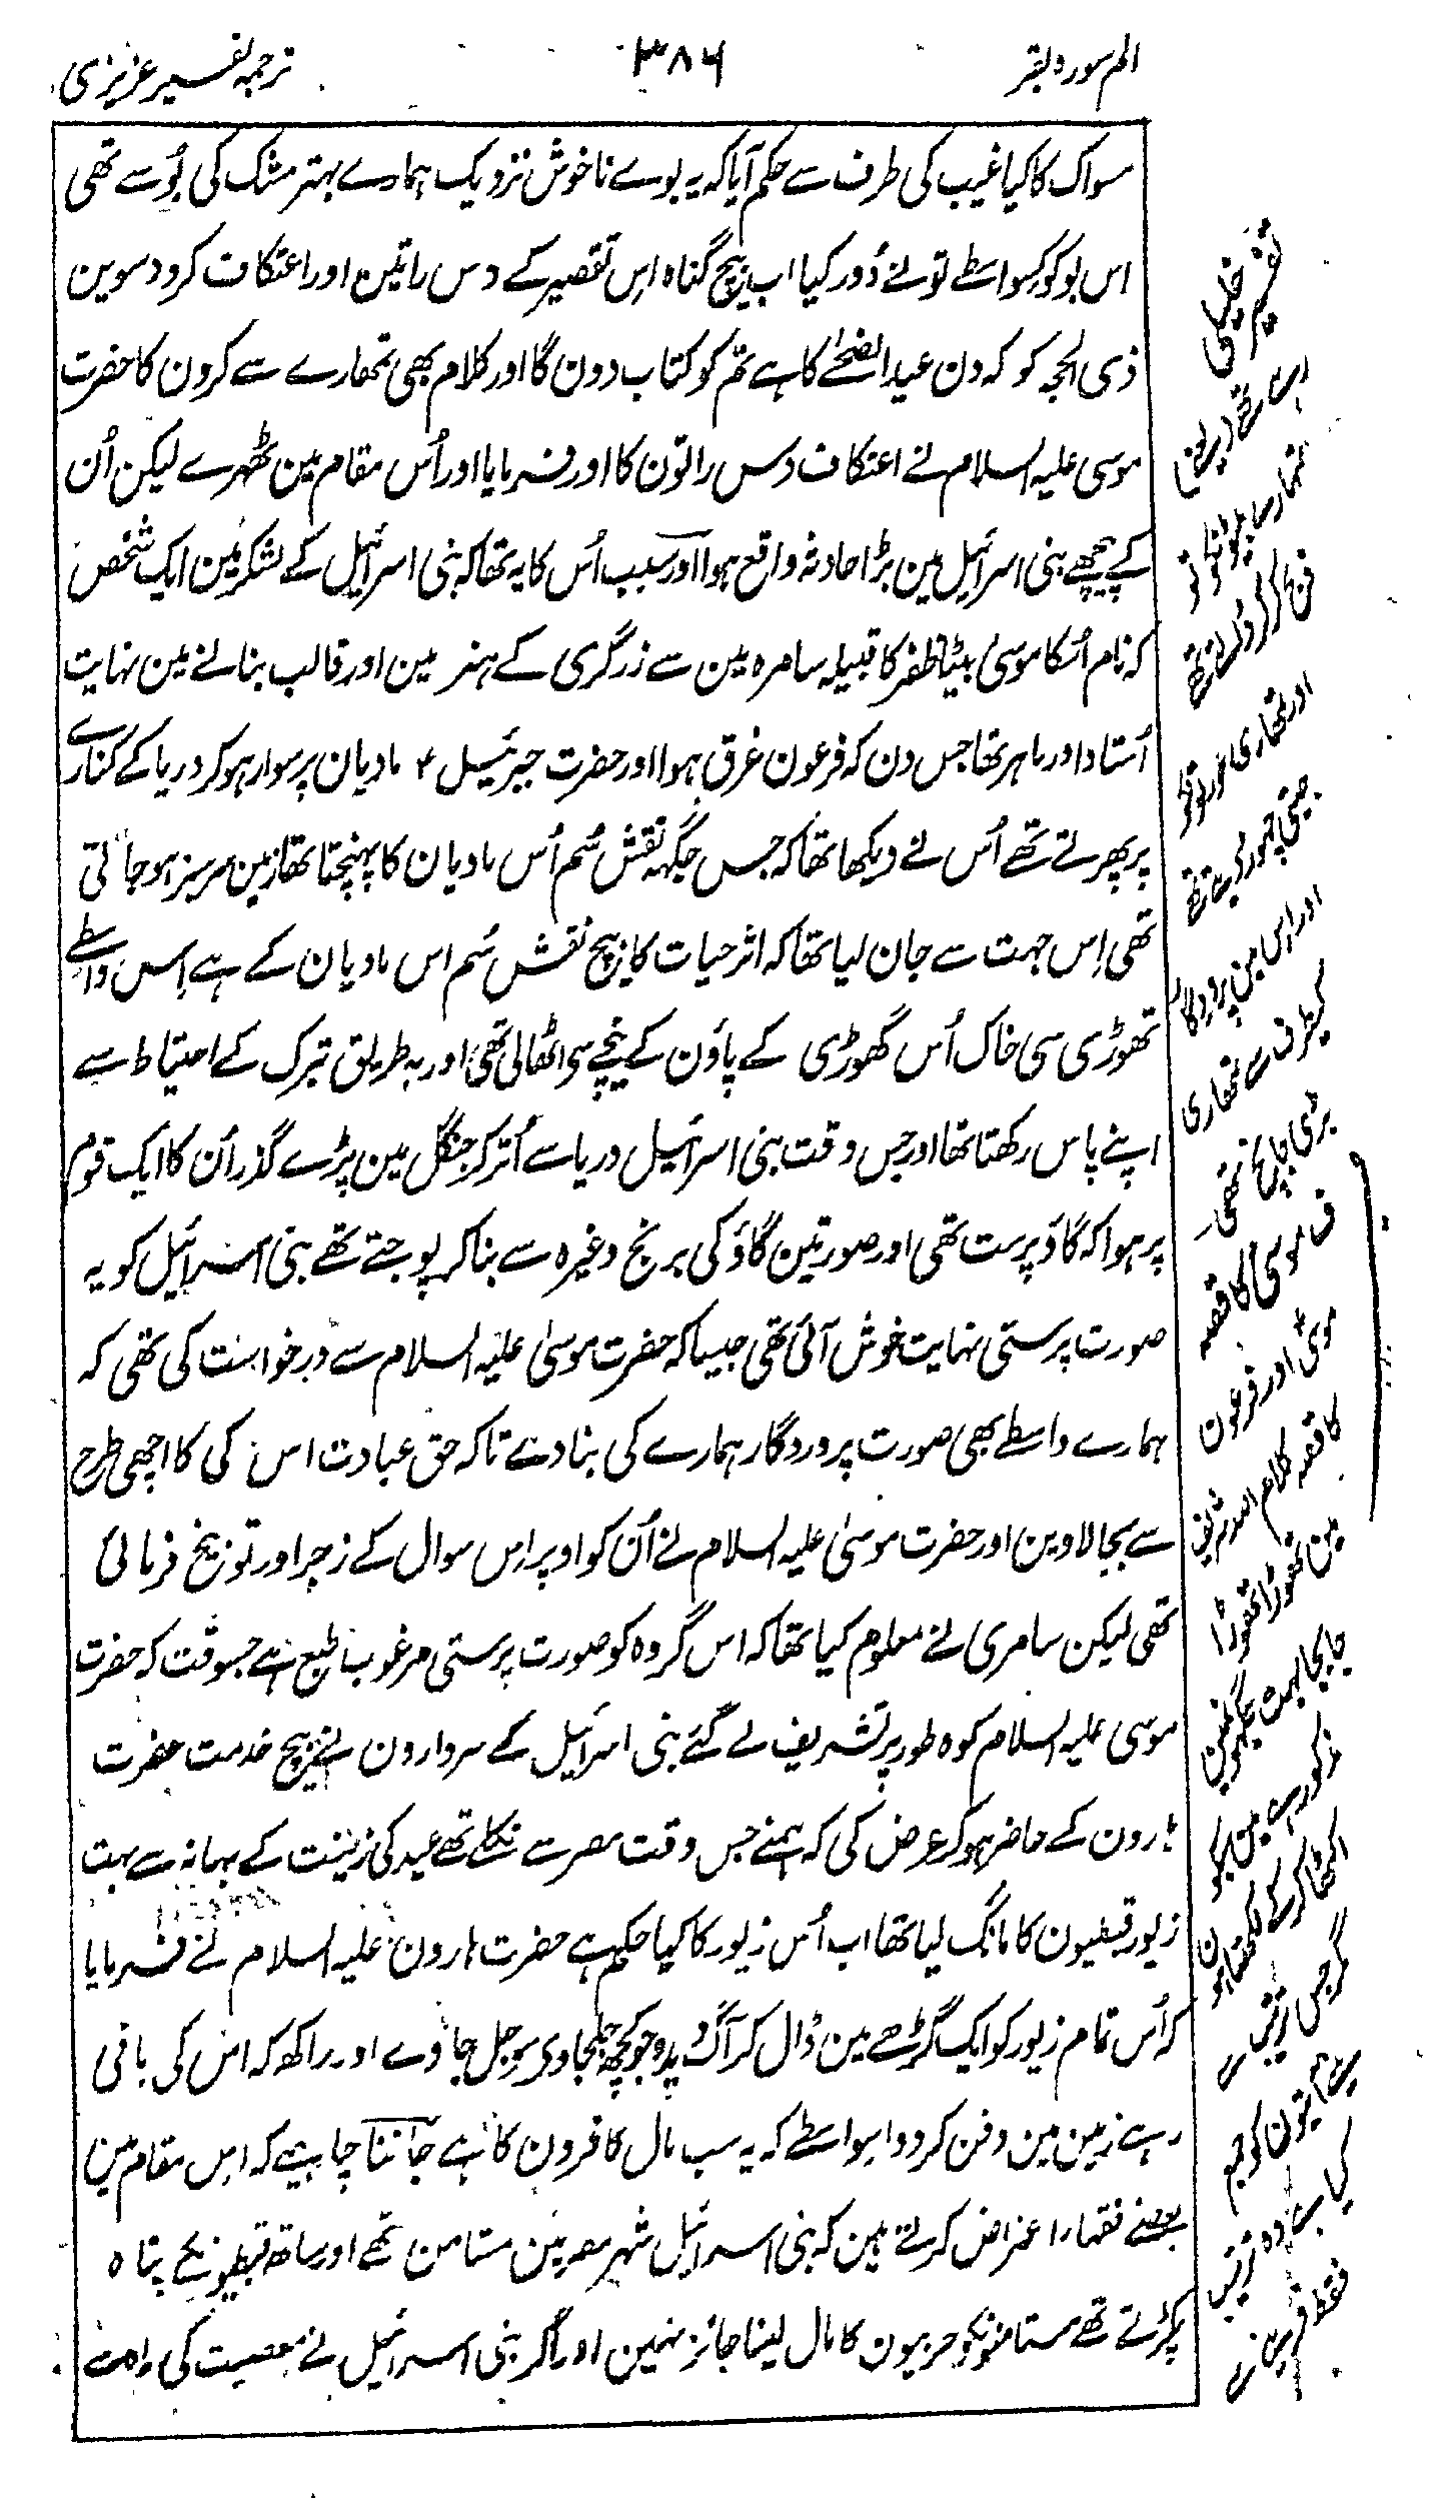 الم سورہ بقر
۳۸۶
ترجمہ تفسیر عزیزی
مسواک کا کیا غیب کی طرف سے حکم آیا کہ یہ بوے ناخوش نزدیک ہمارے بہتر مشک کی بُو سے تھی
اس بو کو کسواسطے تو نے دُور کیا اب بیچ گناہ اِس تقصیر کے دس راتین اور اعتکاف کرو دسوین
ذی الحجہ کو کہ دن عید الضحٰے کا ہے تم کو کتاب دون گا اور کلام بھی تمھارے سے کرون گا حضرت
موسی علیہ السلام نے اعتکاف دس راتون کا اور فرمایا اور اُس مقام مین ٹھہرے لیکن اُن
کے پیچھے بنی اسرائیل مین بڑا حادثہ واقع ہوا اور سبب اُس کا یہ تھا کہ بنی اسرائیل کے لشکر مین ایک شخص
کہ نام اُسکا موسی بیٹا ظفر کا قبیلہ سامرہ مین سے زرگری کے ہنر مین اور قالب بنانے مین نہایت
اُستاد اور ماہر تھا جس دن کہ فرعون غرق ہوا اور حضرت جبرئیل ؑ مادیان پر سوار ہو کر دریا کے کنارے
پر پھرتے تھے اُس نے دیکھا تھا کہ جس جگہہ نقش سُم اُس مادیان کا پہنچتا تھا زمین سرسبز ہو جاتی
تھی اِس جہت سے جان لیا تھا کہ اثر حیات کا بیچ نقش سُم اس مادیان کے ہے اِس واسطے
تھوڑی سی خاک اُس گھوڑی کے پاؤن کے نیچے سی اٹھالی تھی اور بہ طریق تبرک کے احتیاط سے
اپنے پاس رکھتا تھا اور جس وقت بنی اسرائیل دریا سے اُتر کر جنگل مین پڑے گذر اُن کا ایک قوم
پر ہوا کہ گاؤ پرست تھی اور صورتین گاؤ کی برنج وغیرہ سے بنا کر پوجتے تھے بنی اسرائیل کو یہ
صورت پرستی نہایت خوش آئی تھی جیسا کہ حضرت موسیٰ علیہ السلام سے درخواست کی تھی کہ
ہمارے واسطے بھی صورت پروردگار ہمارے کی بنا دے تا کہ حق عبادت اس کی کا اچھی طرح
سے بجا لاوین اور حضرت موسیٰ علیہ السلام نے اُن کو اوپر اِس سوال کے زجر اور توزیخ فرمائی
تھی لیکن سامری نے معلوم کیا تھا کہ اس گروہ کو صورت پرستی مرغوب طبع ہے جسوقت کہ حضرت
موسی علیہ السلام کوہ طور پر تشریف لے گئے بنی اسرائیل کے سردارون نے بیچ خدمت حضرت
ہارون کے حاضر ہو کر عرض کی کہ ہمنے جس وقت مصر سے نکلے تھے عید کی زینت کے بہانہ سے بہت
زیور قبطیون کا مانگ لیا تھا اب اُس زیور کا کیا حکم ہے حضرت ہارون علیہ السلام نے فرمایا
کہ اُس تمام زیور کو ایک گڑھے مین ڈال کر آگ دیدو جو کچھ جلجاوی جل جاوے اور راکھ کہ اس کی باقی
رہے زمین مین دفن کر دو اسواسطے کہ یہ سب مال کافرون کا ہے جاننا چاہیے کہ اِس مقام مین
بعضے فقہا اعتراض کرتے ہین کہ بنی اسرائیل شہر مصر مین مستامن تھے اور ساتھ قبطیونکے پناہ
پکڑتے تھے مستامنونکو حربیون کا مال لینا جائز نہین اور اگر بنی اسرائیل نے معصیت کی راہ سے
اور تمھاری عورتونکو
جیتی چھوڑ دیتے تھے
اور اس مین پروردگار
کیطرف سے تمھاری
بڑی جانچ تھی
ف موسی کا قصہ
موسٰی اور فرعون
کا قصہ کلام اللہ شریف
مین تھوڑا تھوڑا
جا بجا بہت جگہونمین
مذکور ہے مین سبکو
اکٹھا کر کے لکھتا ہون
مگر جس ترتیب سے